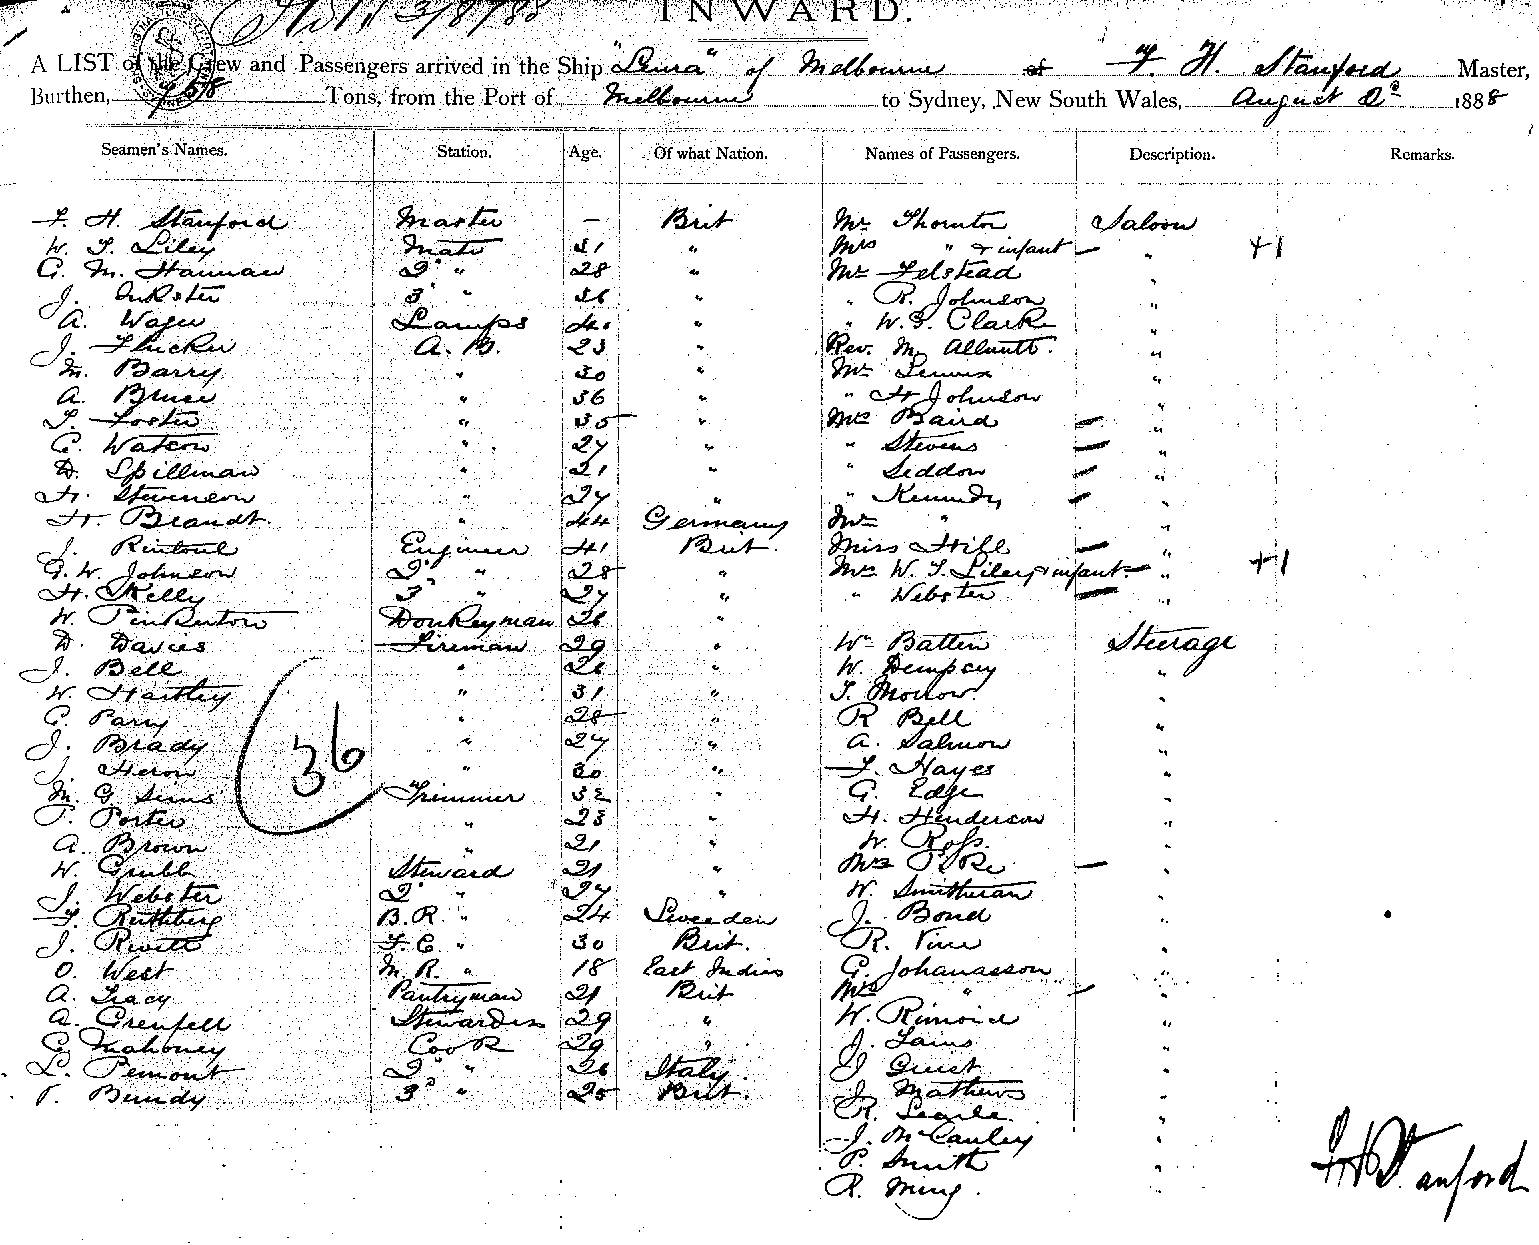 3/8/88 INWARD.
A LIST of the Crew and Passengers arrived in the Ship "Leura" of Melbourne of F. H. Stanford Master,
Burthen, 958 Tons, from the Port of Melbourne to Sydney, New South Wales, August 2d 1888
Seamen's Names. Station. Age. Of what Nation. Names of Passengers. Description. Remarks.
F. H. Stanford Master – Brit Mr Thornton Saloon
W. T. Liley Mate 31 " Mrs " & infant – " +1
G. M. Hannan 2d " 28 " Mr Felstead "
J. Inkster 3d " 36 " " R. Johnson "
A. Wager Lamps 40 " " W. G. Clarke "
J. Flucker A. B. 23 " Rev. M. Allnutt. "
M. Barry " 30 " Mr Lennox "
A. Bruce " 36 " " H Johnson "
T. Foster " 35 " Mrs Baird – "
C. Watson " 27 " " Stevens – "
D. Spillman " 21 " " Seddon – "
H. Stevenson " 27 " " Kennedy – "
H. Brandt. " 44 Germany Mr " "
J. Rintoul Engineer 41 Brit. Miss Hill – "
G. W. Johnson 2d " 28 " Mrs W. T. Liley & infant – " +1
H. Skelly 3d " 27 " " Webster – "
W. Pinkerton Donkeyman 26 "
D. Davies Fireman 29 " Wm Batten Steerage
J. Bell " 26 " W. Dempsey "
W. Hartley " 31 " T. Morrow "
C. Parry " 28 " R Bell "
J. Brady " 27 " A. Salmon "
J. Heron " 30 " F. Hayes "
36
M. G. Sims Trimmer 32 " G. Edge "
T. Porter " 23 " H. Henderson "
A. Brown " 21 " W. Ross "
W. Grubb Steward 21 " Mrs –
J. Webster 2d " 27 " W. Smitheran "
F. Ruthberg B. R. " 24 Sweeden J. Bond "
J. Rivett F. C. " 30 Brit. R. Vine "
O. West M. R. " 18 East Indies G. Johanasson "
A. Tracy Pantryman 21 Brit Mrs " – "
A. Grenfell Stewardess 29 " W. "
C. Mahoney Cook 29 " J. "
L. Pemont 2d " 26 Italy. J Guist "
T. Bundy 3d " 25 Brit. J. Mathews "
R. Searle "
J. McCauley "
P. Smith "
R. Ming. "
F H Stanford